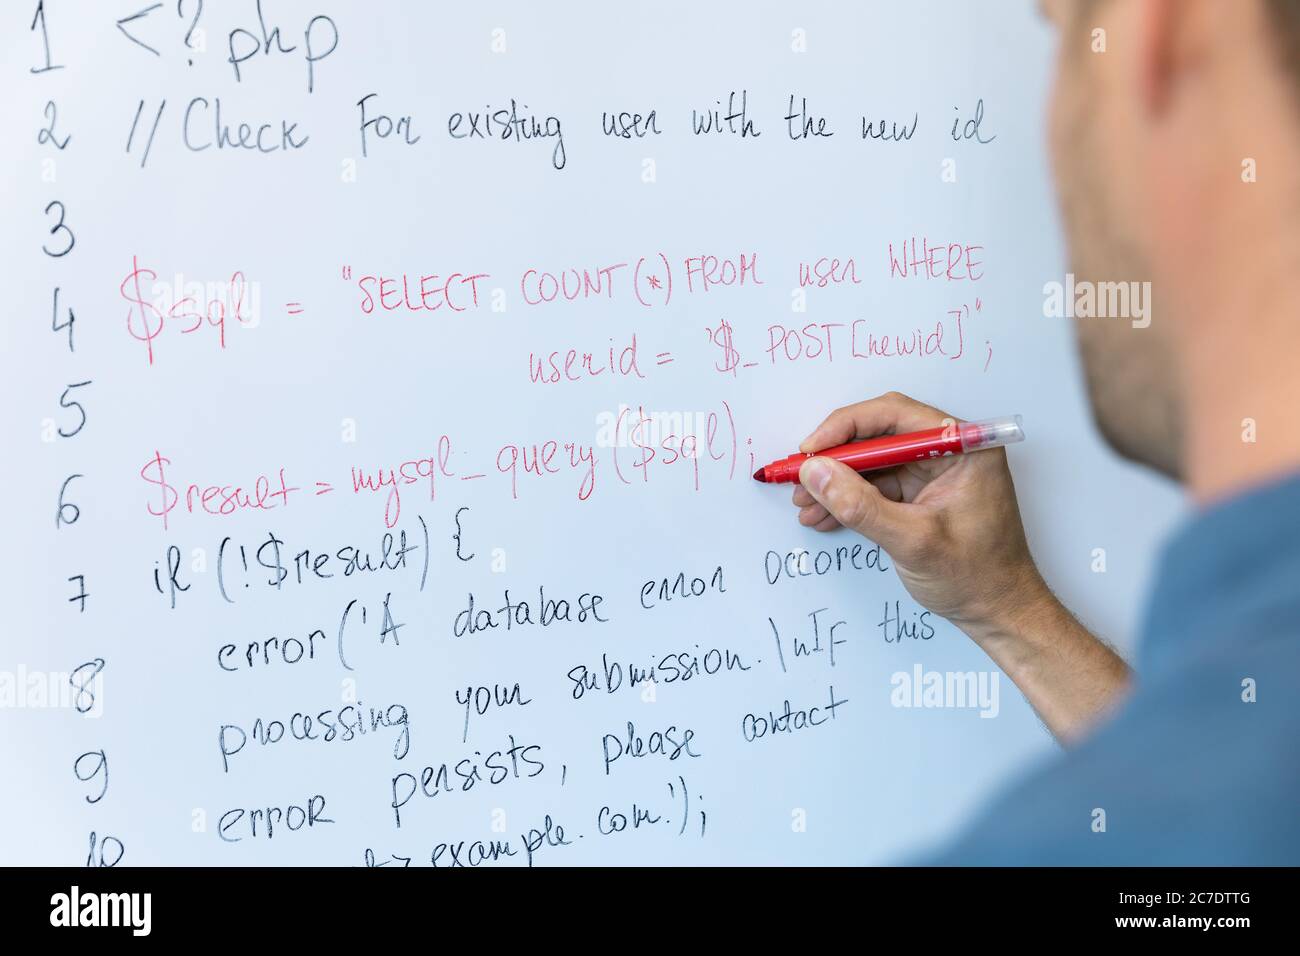 1 <?php
2 // Check For existing user with the new id
3
4 $sql = "SELECT COUNT(*) FROM user WHERE
userid = '$_POST[newid]'";
5
6 $result = mysql_query($sql);
7 if (!$result) {
8 error('A database error occored
9 processing your submission.\nIf this
10 error persists, please contact
example.com.');
alamy
alamy
Image ID: 2C7DTTG
www.alamy.com